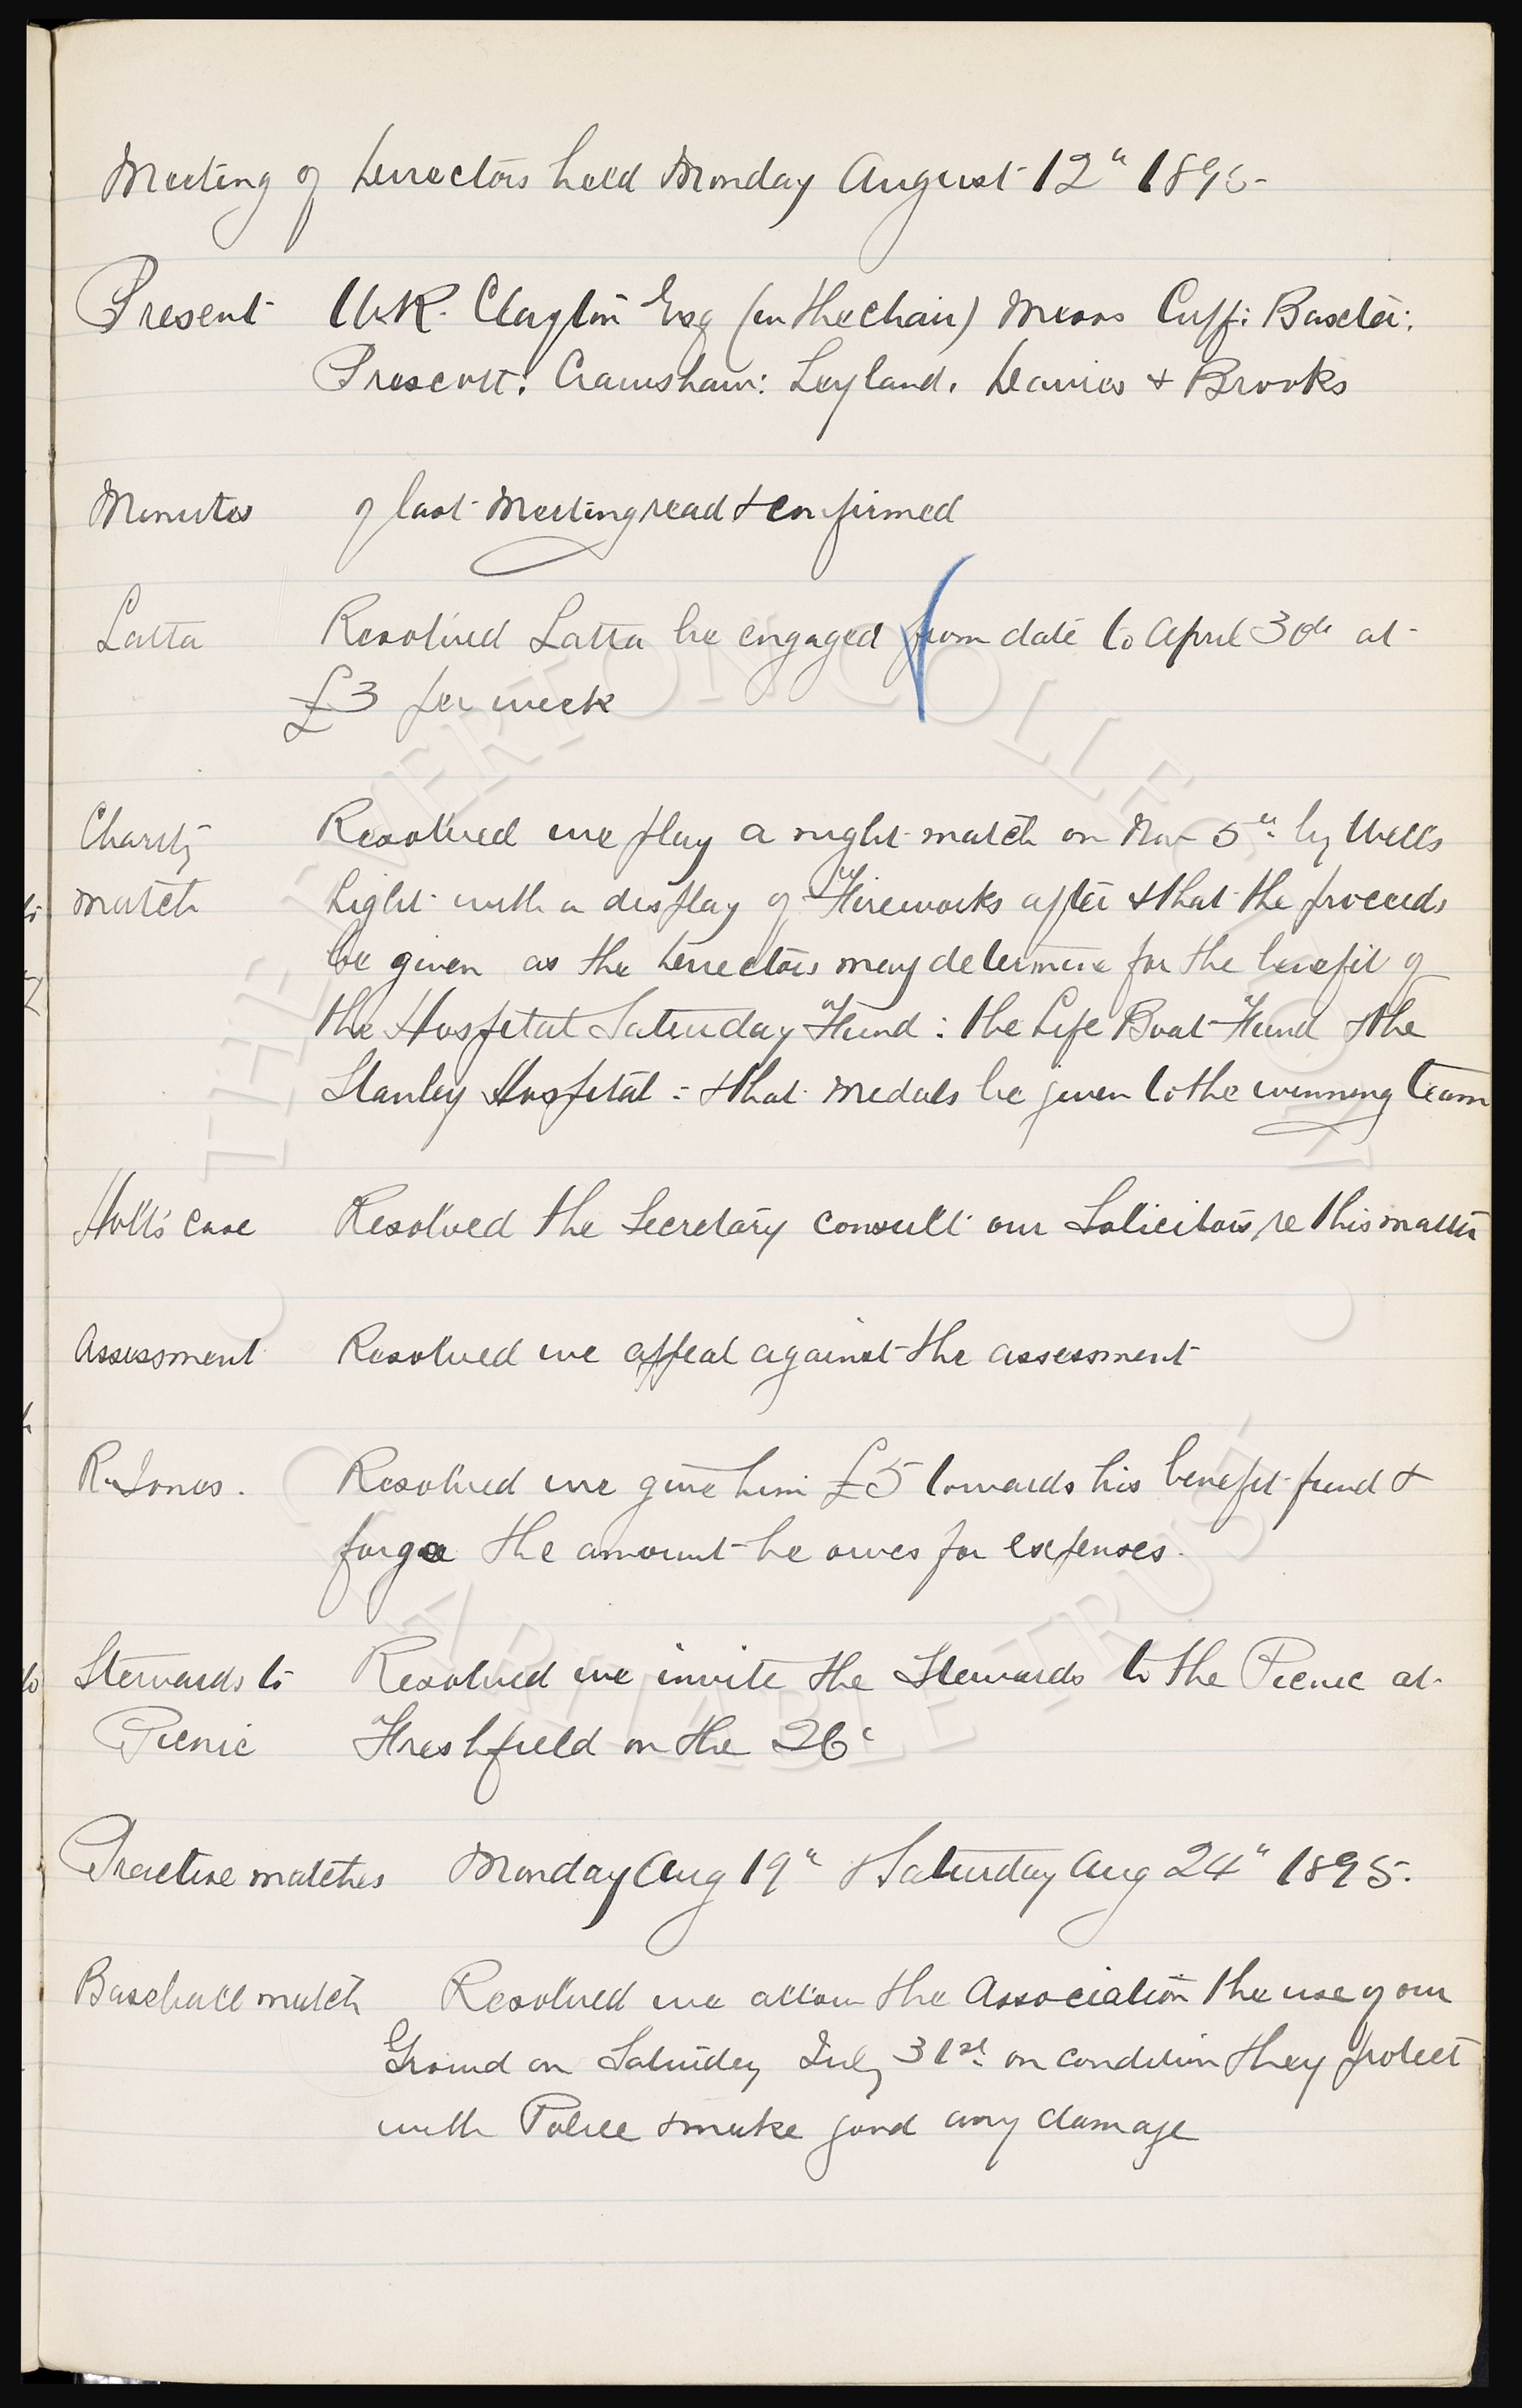 Meeting of Directors held Monday August 12" 1895
Present W.R. Clayton Esq (in the chair) Messrs Cuff: Baxter:
Prescott: Crawshaw: Leyland. Davies & Brooks
Minutes of last meeting read & confirmed
Latta Resolved Latta be engaged from date to April 30th at
£3 per week
Charity Resolved we play a night match on Nov 5th by Wells
match Light with a display of Fireworks after & that the proceeds
be given as the Directors may determine for the benefit of
the Hospital Saturday Fund: the Life Boat Fund & the
Stanley Hospital: & that medals be given to the winning team
Holt's case Resolved the Secretary consult our Solicitors re this matter
Assessment Resolved we appeal against the assessment
R. Jones. Resolved we give him £5 towards his benefit fund &
forgo the amount he owes for expenses.
Stewards to Resolved we invite the Stewards to the Picnic at
Picnic Freshfield on the 26"
Practice matches Monday Aug 19" & Saturday Aug 24" 1895.
Baseball match Resolved we allow the Association the use of our
Ground on Saturday July 31st on condition they protect
with Police & make good any damage
THE EVERTON COLLECTION
CHARITABLE TRUST